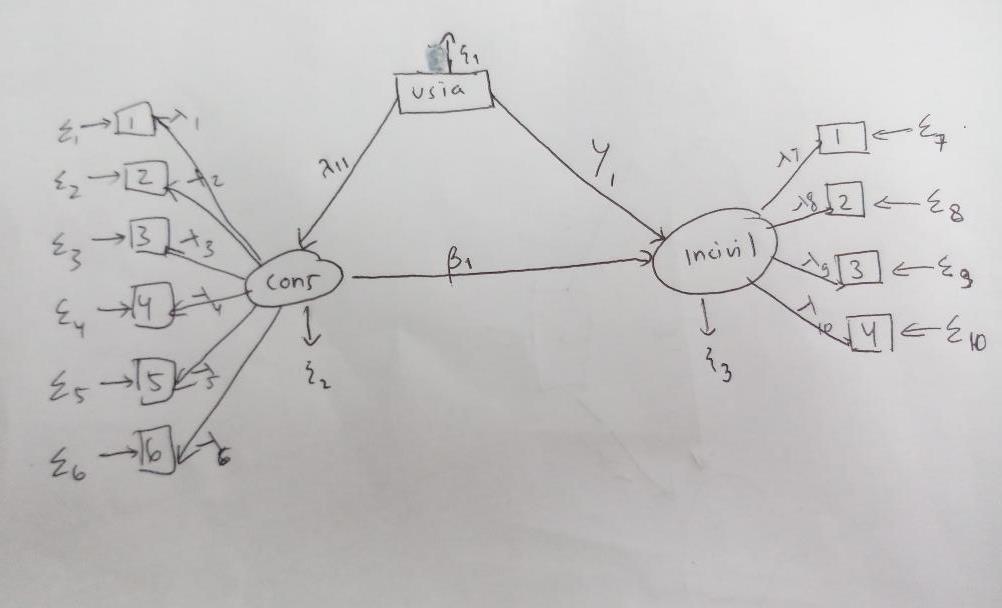 ξ₁
usia
ε₁ → 1 λ₁
ε₂ → 2 λ₂
ε₃ → 3 λ₃
ε₄ → 4 λ₄
ε₅ → 5 λ₅
ε₆ → 6 λ₆
λ₁₁
γ₁
cons
β₁
Incivil
ξ₂
ξ₃
λ₇ 1 ← ε₇
λ₈ 2 ← ε₈
λ₉ 3 ← ε₉
λ₁₀ 4 ← ε₁₀